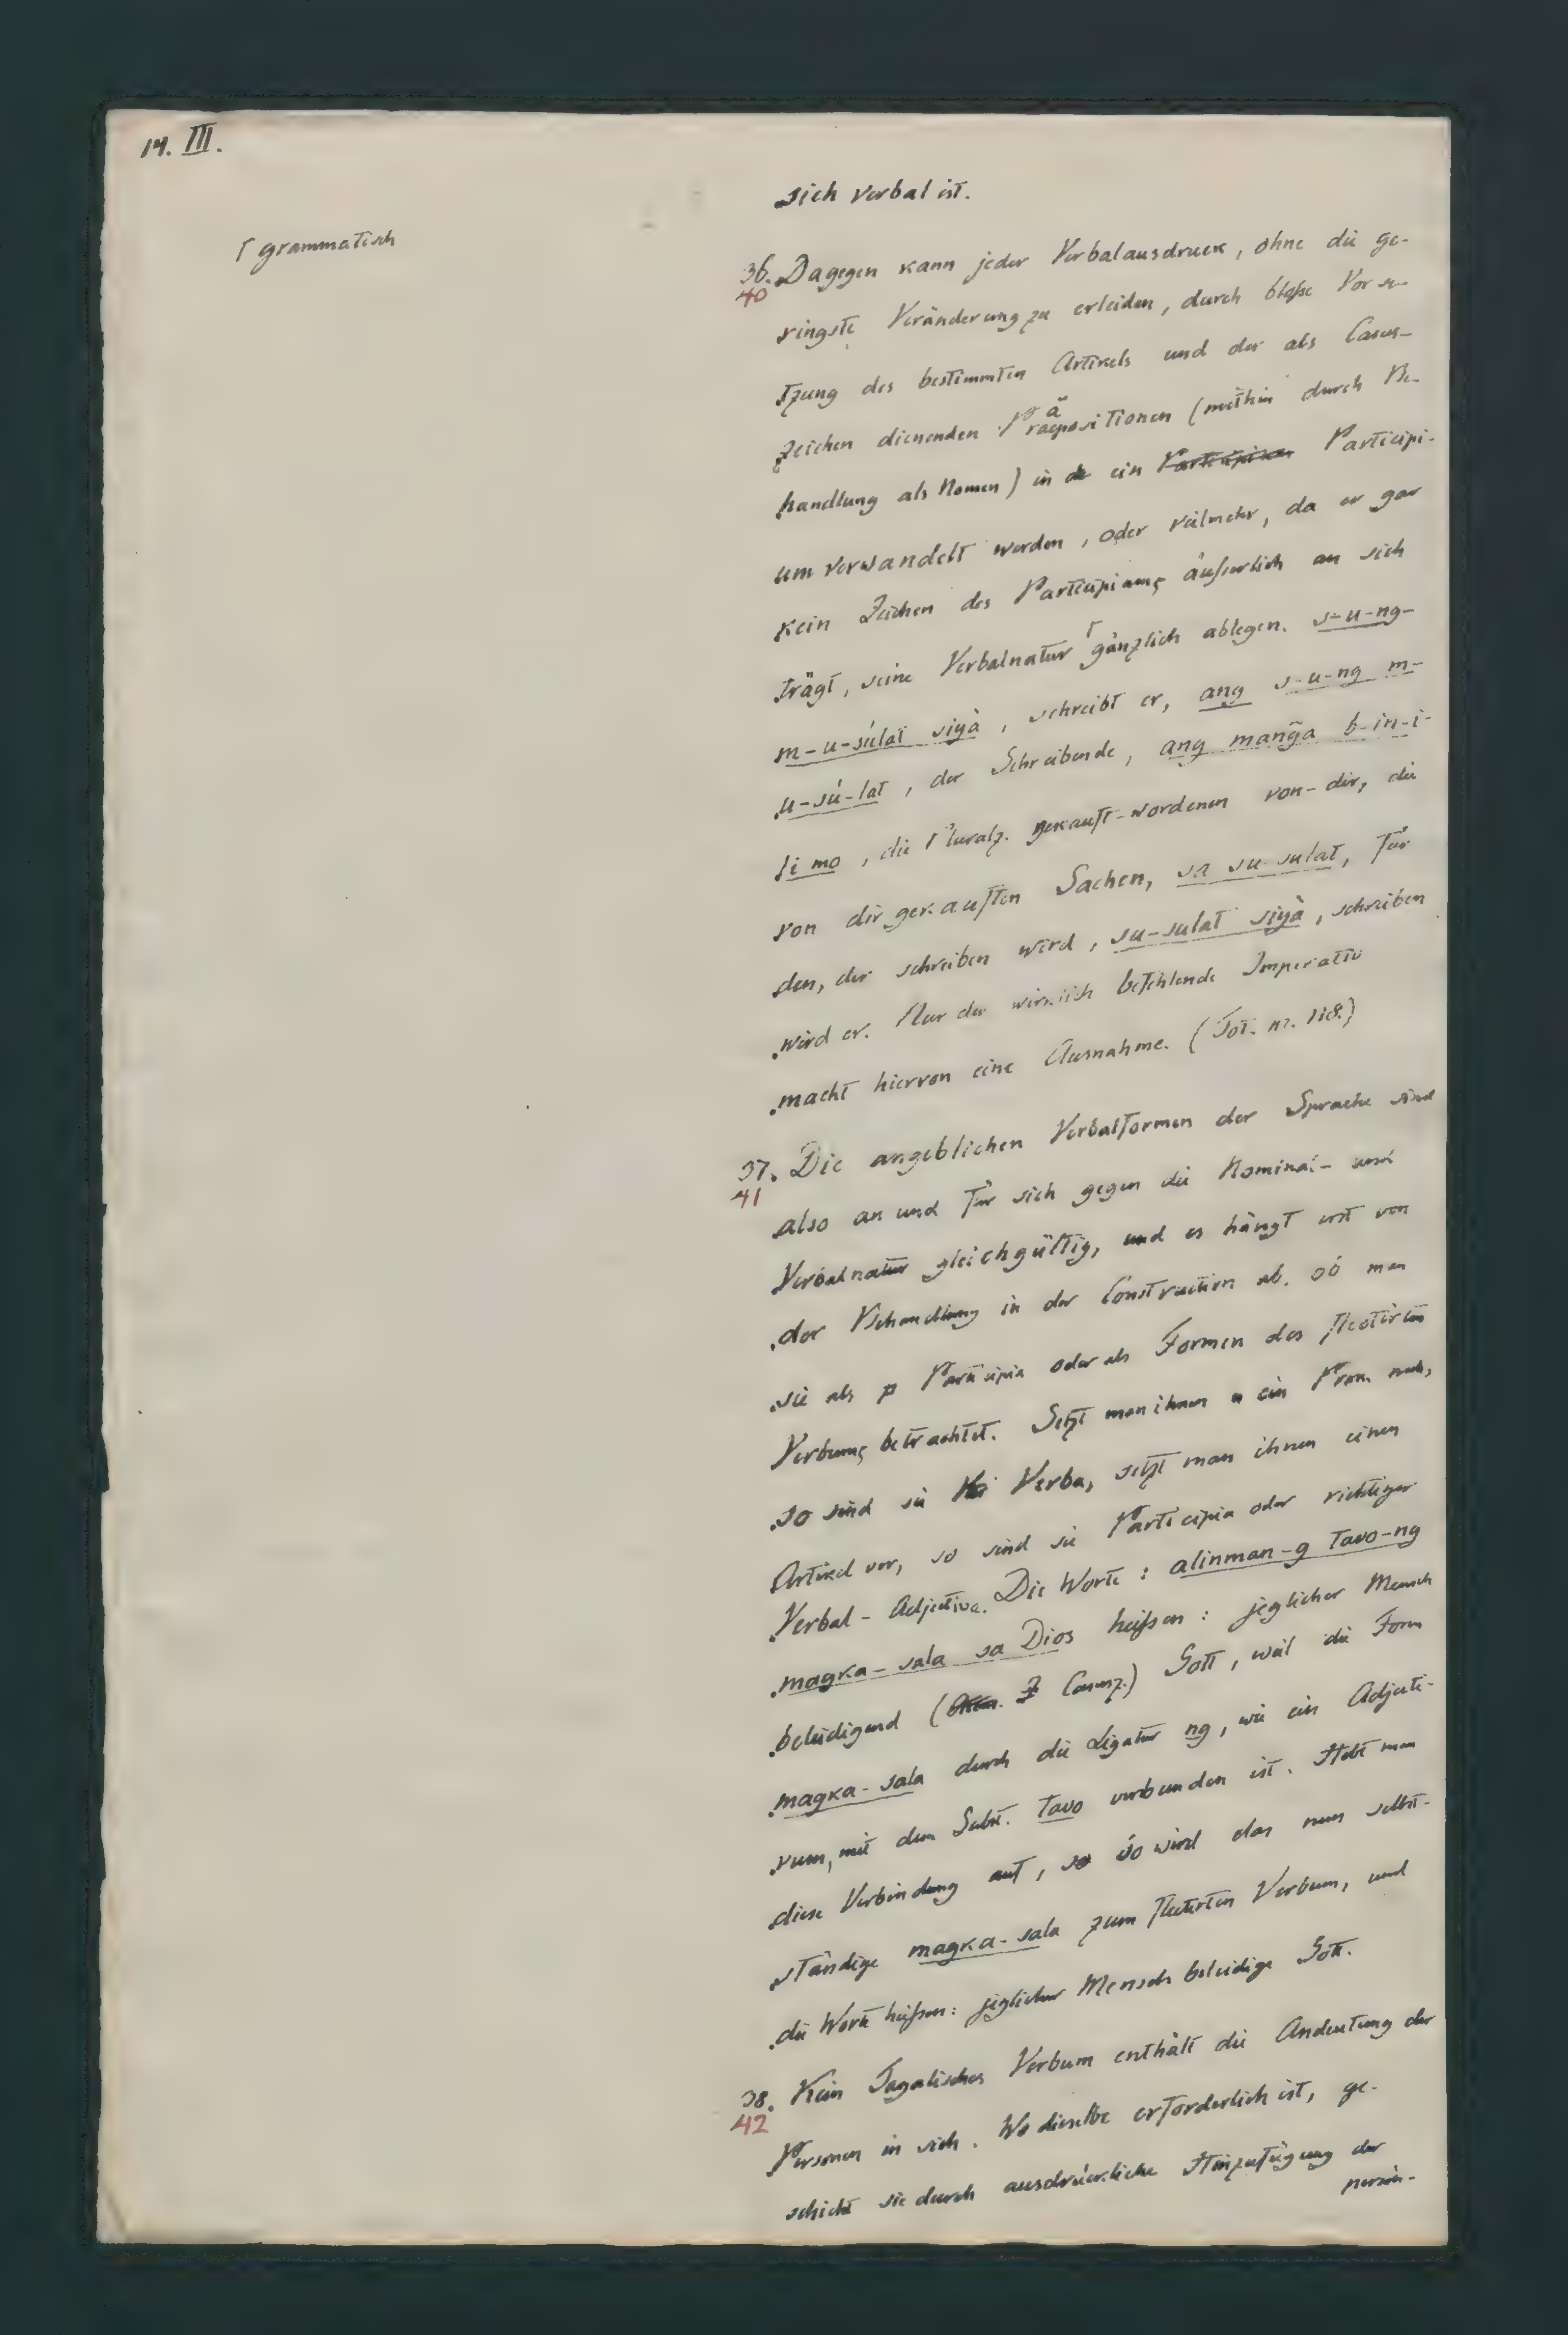 14. III.
⌈ grammatisch
sich verbal ist.
36. Dagegen kann jeder Verbalausdruck, ohne die ge-
40
ringste Veränderung zu erleiden, durch bloße Vorse-
tzung des bestimmten Artikels und der als Casus-
zeichen dienenden Präpositionen (mithin durch Be-
handlung als Nomen) in ein Participi-
um verwandelt werden, oder vielmehr, da er gar
kein Zeichen des Participiums äußerlich an sich
trägt, seine Verbalnatur ⌈ gänzlich ablegen. s-u-ng-
m-u-súlat siyà, schreibt er, ang s-u-ng m-
u-sú-lat, der Schreibende, ang manğa b-in-i-
li mo, die Pluralz. gekauft-wordenen von-dir, die
von dir gekauften Sachen, sa su-sulat, für
den, der schreiben wird, su-sulat siyà, schreiben
wird er. Nur der wirklich befehlende Imperativ
macht hiervon eine Ausnahme. (Tot. nr. 118.)
37. Die angeblichen Verbalformen der Sprache sind
41
also an und für sich gegen die Nominal- und
Verbalnatur gleichgültig, und es hängt erst von
der Behandlung in der Construction ab, ob man
sie als Participia oder als Formen des flectirten
Verbums betrachtet. Setzt man ihnen ein Pron. nach,
so sind sie Verba, setzt man ihnen einen
Artikel vor, so sind sie Participia oder richtiger
Verbal-Adjectiva. Die Worte: alinman-g tavo-ng
magka-sala sa Dios heißen: jeglicher Mensch
beleidigend (Casusz.) Gott, weil die Form
magka-sala durch die Ligatur ng, wie ein Adjecti-
vum, mit dem Subst. tavo verbunden ist. Hebt man
diese Verbindung auf, so wird das nun selbst-
ständige magka-sala zum flectirten Verbum, und
die Worte heißen: jeglicher Mensch beleidige Gott.
38. Kein Tagalisches Verbum enthält die Andeutung der
42
Personen in sich. Wo dieselbe erforderlich ist, ge-
schieht sie durch ausdrückliche Hinzufügung der
persön-